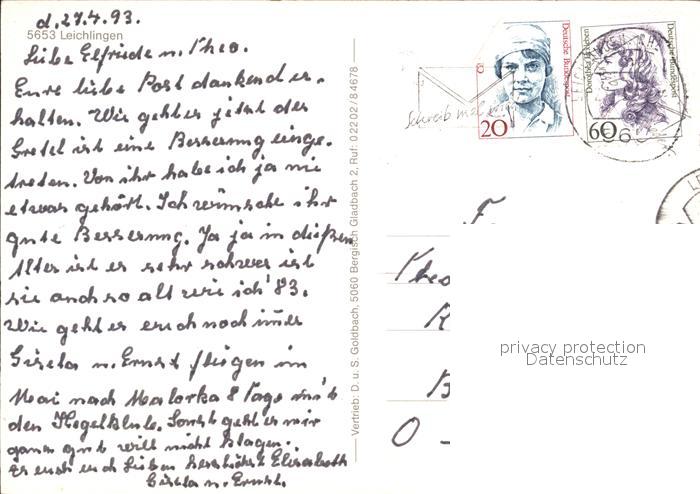 d. 27.4.93.
5653 Leichlingen
Liebe Elfriede u. Theo.
Eure liebe Post dankend er-
halten. Wir geht es jetzt der
Gretel ist eine Besserung einge-
treten. Von ihr habe ich ja nie
etwas gehört. Ich wünsche ihr
gute Besserung. Ja ja in dießen
Alter ist es sehr schwer ist
sie auch so alt wie ich 83.
Wie geht es euch noch immer
Gisela u. Ernst fliegen im
Mai nach Malorka 8 Tage mit
den Kegelklub. Sonst geht es mir
ganz gut will nicht klagen.
Es euch lieben herzlichst Elisabeth
Gisela u. Ernst.
Vertrieb: D. u. S. Goldbach, 5060 Bergisch Gladbach 2, Ruf: 02202/84678
Schreib mal
Deutsche Bundespost
20
Deutsche Bundespost
60
6
F
Theo
K
B
O -
privacy protection
Datenschutz